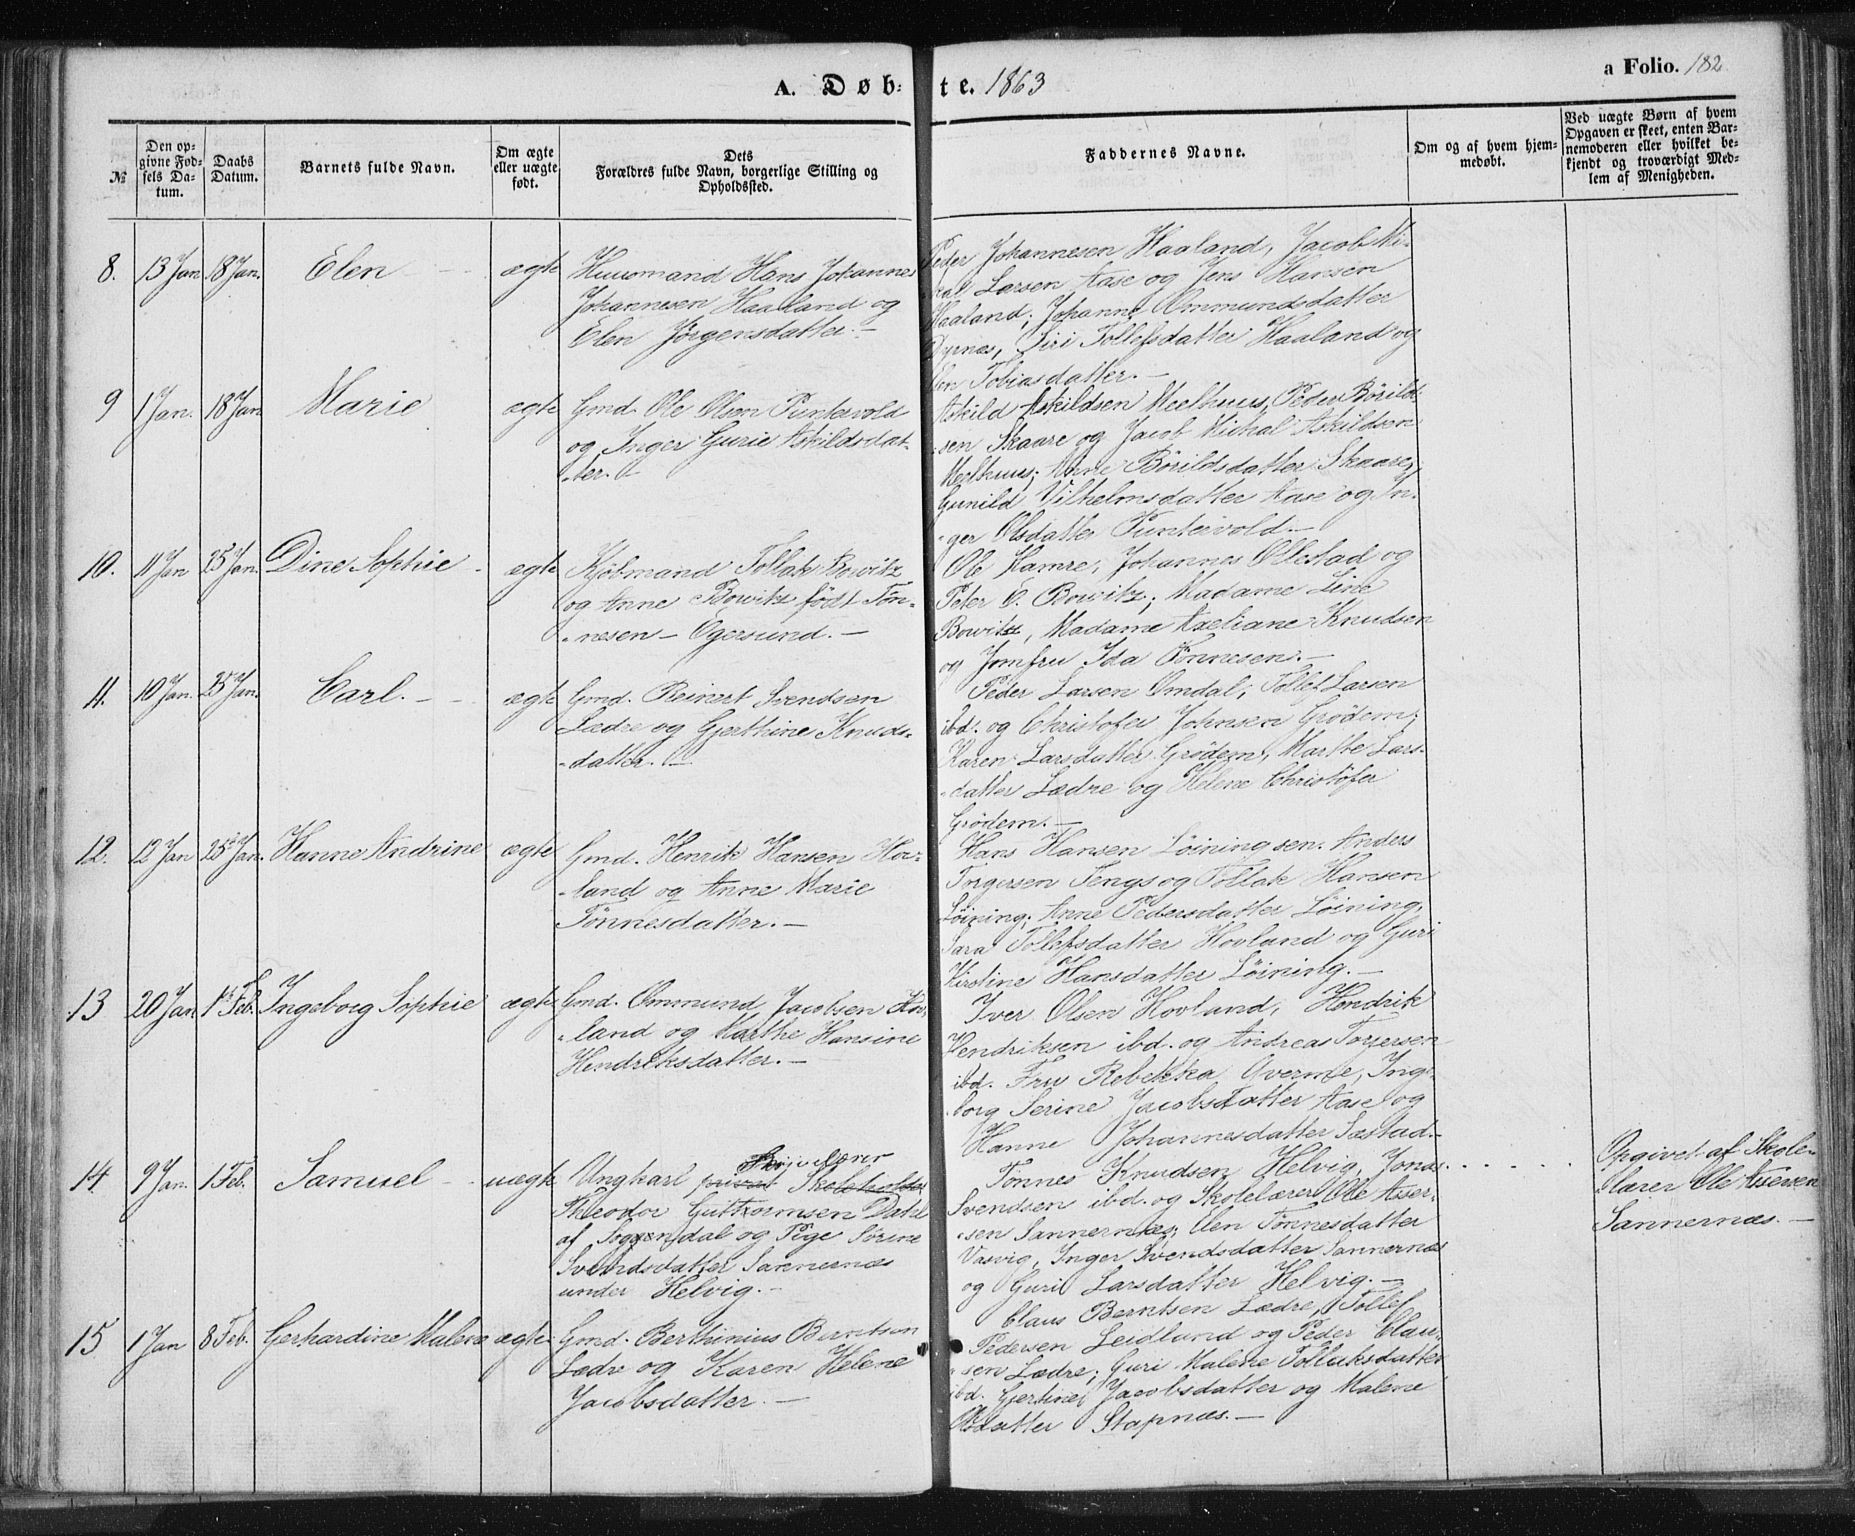 A. Døb-te. 1863
a Folio. 182
№
Den op-
givne Fød-
sels Da-
tum.
Daabs
Datum.
Barnets fulde Navn.
Om ægte
eller uægte
født.
Dets
Forældres fulde Navn, borgerlige Stilling og
Opholdssted.
Faddernes Navne.
Om og af hvem hjem-
medøbt.
Ved uægte Børn af hvem
Opgaven er skeet, enten Bar-
nemoderen eller hvilket be-
kjendt og troværdigt Med-
lem af Menigheden.
8. 13 Jan 18 Jan. Elen ægte
Huusmand Hans Johannes
Johannesen Haaland og
Elen Jörgensdatter. –
Peder Johannesen Haaland, Jacob Mi-
kal Larsen Aase og Jens Hansen
Haaland; Johanne Ommundsdatter
Dyrnæs, Siri Tollefsdatter Haaland og
Elen Tobiasdatter. –
9 1 Jan. 18 Jan Marie ægte
Gmd. Ole Olsen Puntervold
og Inger Gurie Askildsdat-
-ter. –
Askild Askildsen Meelhuus, Peder Börild-
-sen Skaare og Jacob Michal Askildsen
Meelhuus; Anne Börildsdatter Skaare,
Gunild Vilhelmsdatter Aase og In-
-ger Olsdatter Puntervold –
10. 11 Jan 25 Jan. Dine Sophie – ægte
Kjöbmand Tollak Bowitz
og Anne Bowitz födt Tön-
-nesen – Egersund. –
Ole Kamre, Johannes Ollestad og
Peter C. Bowitz; Madame Line
Bowitz, Madame Axeliane Knudsen
og Jomfru Ida Tönnesen. –
11. 10 Jan. 25 Jan. Carl. – ægte
Gmd. Reinert Svendsen
Lædre og Gjerthine Knuds-
-datter. –
Peder Larsen Omdal, Tollef Larsen
ibd. og Christofer Johnsen Grödem;
Karen Larsdatter Grödem, Marthe Lars-
-datter Lædre og Helene Christofer
Grödem. –
12. 12 Jan 25 Jan. Hanne Andrine ægte
Gmd. Henrik Hansen Hov-
-land og Anne Marie
Tönnesdatter. –
Hans Hansen Löiningsen. Anders
Torgersen Tengs og Tollak Hansen
Löining; Anne Pedersdatter Löining,
Sara Tollefsdatter Hovland og Guri
Kirstine Hansdatter Löining. –
13 20 Jan 1st Feb. Ingeborg Sophie ægte
Gmd. Ommund Jacobsen Hov-
-land og Marthe Hansine
Hendriksdatter. –
Iver Olsen Hovland, Hendrik
Hendriksen ibd. og Andreas Torjersen
ibd. Fru Rebekka Qverme, Inge-
borg Serine Jacobsdatter Aase og
Hanne Johannesdatter Sæstad. –
14. 9 Jan. 1 Feb. Samuel – uægte
Ungkarl privat Skoleholder
Theodor Guttormsen Dahl
af Soggendal og Pige Sörine
Svendsdatter Sannernæs
under Helvig. –
Tönnes Knudsen Helvig, Jonas
Svendsen ibd. og Skolelærer Ole Asser-
-sen Sannernæs; Elen Tönnesdatter
Vasvig, Inger Svendsdatter Sannernæs
og Guri Larsdatter Helvig. –
Opgivet af Skole-
-lærer Ole Assersen
Sannernæs. –
15 1 Jan 8 Feb. Gerhardine Malene ægte
Gmd. Berthinius Berntsen
Lædre og Karen Helene
Jacobsdatter. –
Claus Berntsen Lædre, Tollef
Pedersen Leidland og Peder Clau-
-sen Lædre; Guri Malene Tollaksdatter
ibd. Gjertine Jacobsdatter og Malene
Olsdatter Stapnæs. –